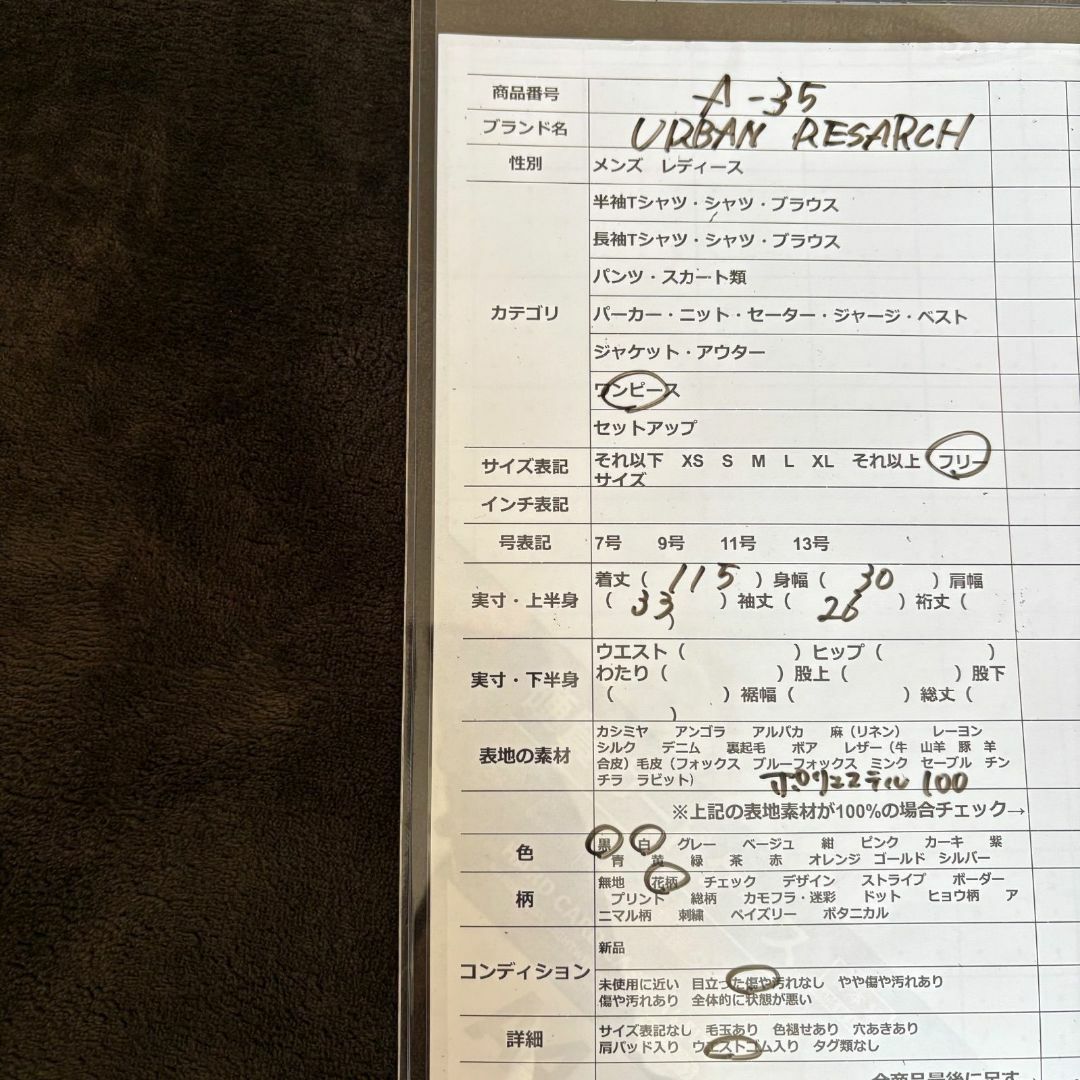 商品番号 A-35
ブランド名 URBAN RESARCH
性別 メンズ レディース
半袖Tシャツ・シャツ・ブラウス
長袖Tシャツ・シャツ・ブラウス
パンツ・スカート類
カテゴリ パーカー・ニット・セーター・ジャージ・ベスト
ジャケット・アウター
ワンピース
セットアップ
サイズ表記 それ以下 XS S M L XL それ以上 フリー
サイズ
インチ表記
号表記 7号 9号 11号 13号
着丈（ 115 ）身幅（ 30 ）肩幅
実寸・上半身 （ 33 ）袖丈（ 26 ）裄丈（
）
ウエスト（ ）ヒップ（ ）
実寸・下半身 わたり（ ）股上（ ）股下
（ ）裾幅（ ）総丈（
）
カシミヤ アンゴラ アルパカ 麻（リネン） レーヨン
シルク デニム 裏起毛 ボア レザー（牛 山羊 豚 羊
表地の素材 合皮）毛皮（フォックス ブルーフォックス ミンク セーブル チン
チラ ラビット） ポリエステル 100
※上記の表地素材が100%の場合チェック→
色 黒 白 グレー ベージュ 紺 ピンク カーキ 紫
青 黄 緑 茶 赤 オレンジ ゴールド シルバー
無地 花柄 チェック デザイン ストライプ ボーダー
柄 プリント 総柄 カモフラ・迷彩 ドット ヒョウ柄 ア
ニマル柄 刺繍 ペイズリー ボタニカル
新品
コンディション 未使用に近い 目立った傷や汚れなし やや傷や汚れあり
傷や汚れあり 全体的に状態が悪い
詳細 サイズ表記なし 毛玉あり 色褪せあり 穴あきあり
肩パッド入り ウエストゴム入り タグ類なし
全商品最後に足す→